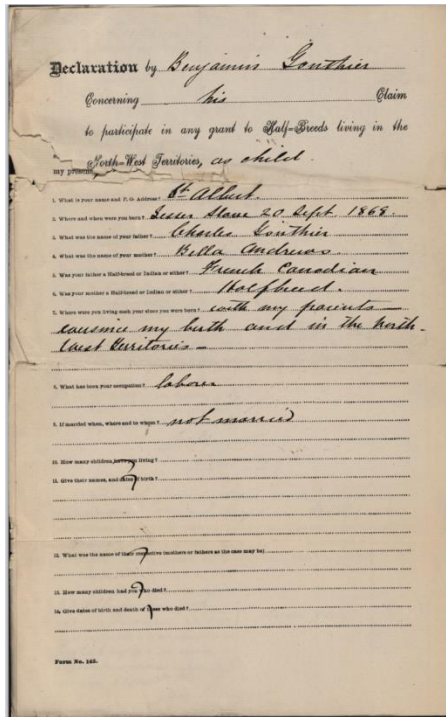 Declaration by Benjamin Gouthier
Concerning his Claim
to participate in any grant to Half=Breeds living in the
North=West Territories, as child.
my present
1. What is your name and P. O. Address? St. Albert.
2. Where and when were you born? Lesser Slave 20 Sept. 1869.
3. What was the name of your father? Charles Gouthier
4. What was the name of your mother? Bella Andrews
5. Was your father a Half-breed or Indian or either? French Canadian
6. Was your mother a Half-breed or Indian or either? Halfbreed.
7. Where were you living each year since you were born? with my parents —
my birth and in the North-
West Territories —
8. What has been your occupation? laborer
9. If married when, where and to whom? not married
10. How many children have you living?
11. Give their names, and dates of birth?
12. What was the name of their respective (mothers or fathers as the case may be)
13. How many children had you who died?
14. Give dates of birth and death of those who died?
Form No. 145.